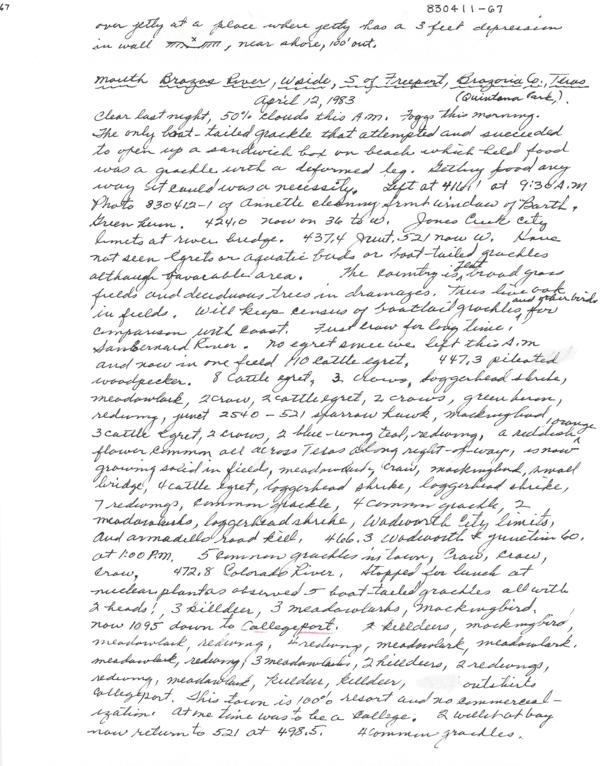 67
830411-67
over jetty at a place where jetty has a 3 feet depression
in wall , near shore, 100' out.
Mouth Brazos River, Wside, S of Freeport, Brazoria Co., Texas
April 12, 1983 (Quintana Park,).
Clear last night, 50% clouds this A.M. Foggy this morning.
The only boat-tailed grackle that attempted and succeeded
to open up a sandwich box on beach which held food
was a grackle with a deformed leg. Getting food any
way it could was a necessity. Left at 416.1 at 9:30 A.M
Photo 830412-1 of Annette cleaning front window of Barth.
Green heron. 424.0 now on 36 to W. Jones Creek City
limits at river bridge. 437.4 Junt. 521 now W. Have
not seen Egrets or aquatic birds or boat-tailed grackles
although favorable area. The country is flat, broad grass
fields and deciduous trees in dramages. Trees live oak
in fields. Will keep census of boattail grackles, and other birds for
comparison with coast. First crow for long time!
San Bernard River. No egret since we left this A.M
and now in one field 110 cattle egret, 447.3 pileated
woodpecker. 8 cattle egret, 3 crows, loggerhead shrike,
meadowlark, 2 crow, 2 cattle egret, 2 crows, green heron,
redwing, junct 2540-521 sparrow hawk, mockingbird,
3 cattle egret, 2 crows, 2 blue-wing teal, redwing, a reddish orange
flower common all across Texas along right-of-way, is now
growing solid in field, meadowlark, crow, mockingbird, small
bridge, 4 cattle egret, loggerhead shrike, loggerhead shrike,
7 redwings, common grackle, 4 common grackle, 2
meadowlarks, loggerhead shrike, Wadworth City limits,
and armadillo road kill. 466.3 Wadworth & junction 60.
at 1:00 P.M. 5 common grackles in town, crow, crow,
crow, 472.8 Colorado River, stopped for lunch at
nuclear plant as observed 5 boat-tailed grackles all with
2 heads!, 3 killdeer, 3 meadowlarks, mockingbird.
now 1095 down to Collegeport. 2 killdeers, mockingbird,
meadowlark, redwing, redwing, meadowlark, meadowlark.
meadowlark, redwing, 3 meadowlarks, 2 killdeers, 2 redwings,
redwing, meadowlark, killdeer, killdeer, outskirts
Collegeport. This town is 100% resort and no commercial-
ization! At one time was to be a College. 2 willet at bay
now return to 521 at 498.5. 4 common grackles.